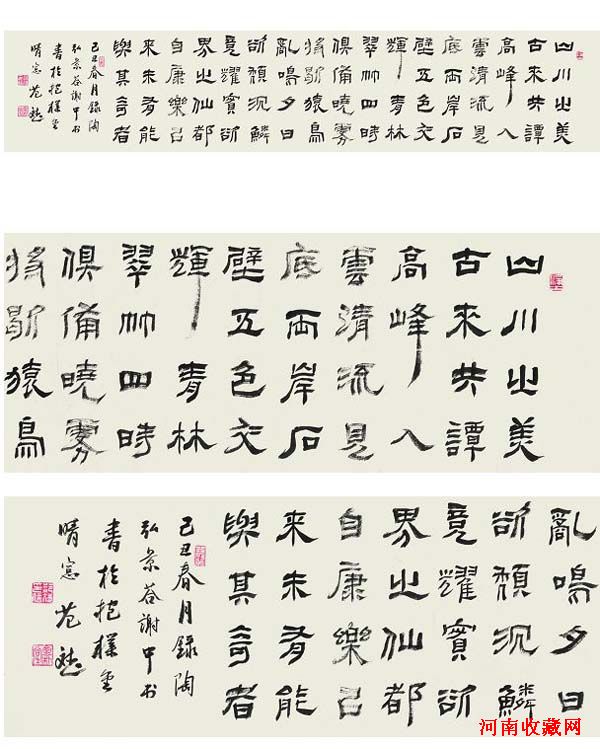 山川之美
古來共譚
高峰入
雲清流見
底兩岸石
壁五色交
輝青林
翠竹四時
俱備曉霧
將歇猿鳥
亂鳴夕日
欲頹沉鱗
竟耀實欲
界之仙都
自康樂己
來未有能
與其奇者
己丑春月錄陶
弘景荅謝中书
書於抱樸堂
晴窓 范
山川之美
古來共譚
高峰入
雲清流見
底兩岸石
壁五色交
輝青林
翠竹四時
俱備曉霧
將歇猿鳥
亂鳴夕日
欲頹沉鱗
竟耀實欲
界之仙都
自康樂己
來未有能
與其奇者
己丑春月錄陶
弘景荅謝中书
書於抱樸堂
晴窓 范
河南收藏网